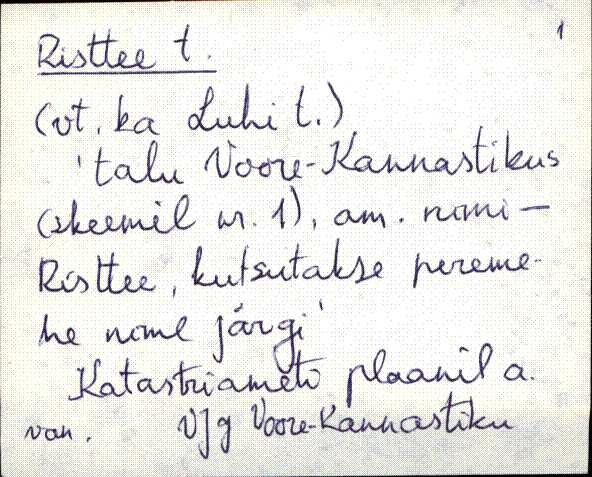 1
Risttee t.
(vt. ka Luhi t.)
'talu Voore-Kannastikus
(skeemil nr. 1), am. nimi –
Risttee, kutsutakse pereme-
he nime järgi'
Katastriameti plaanil a.
van. VJg Voore-Kannastiku